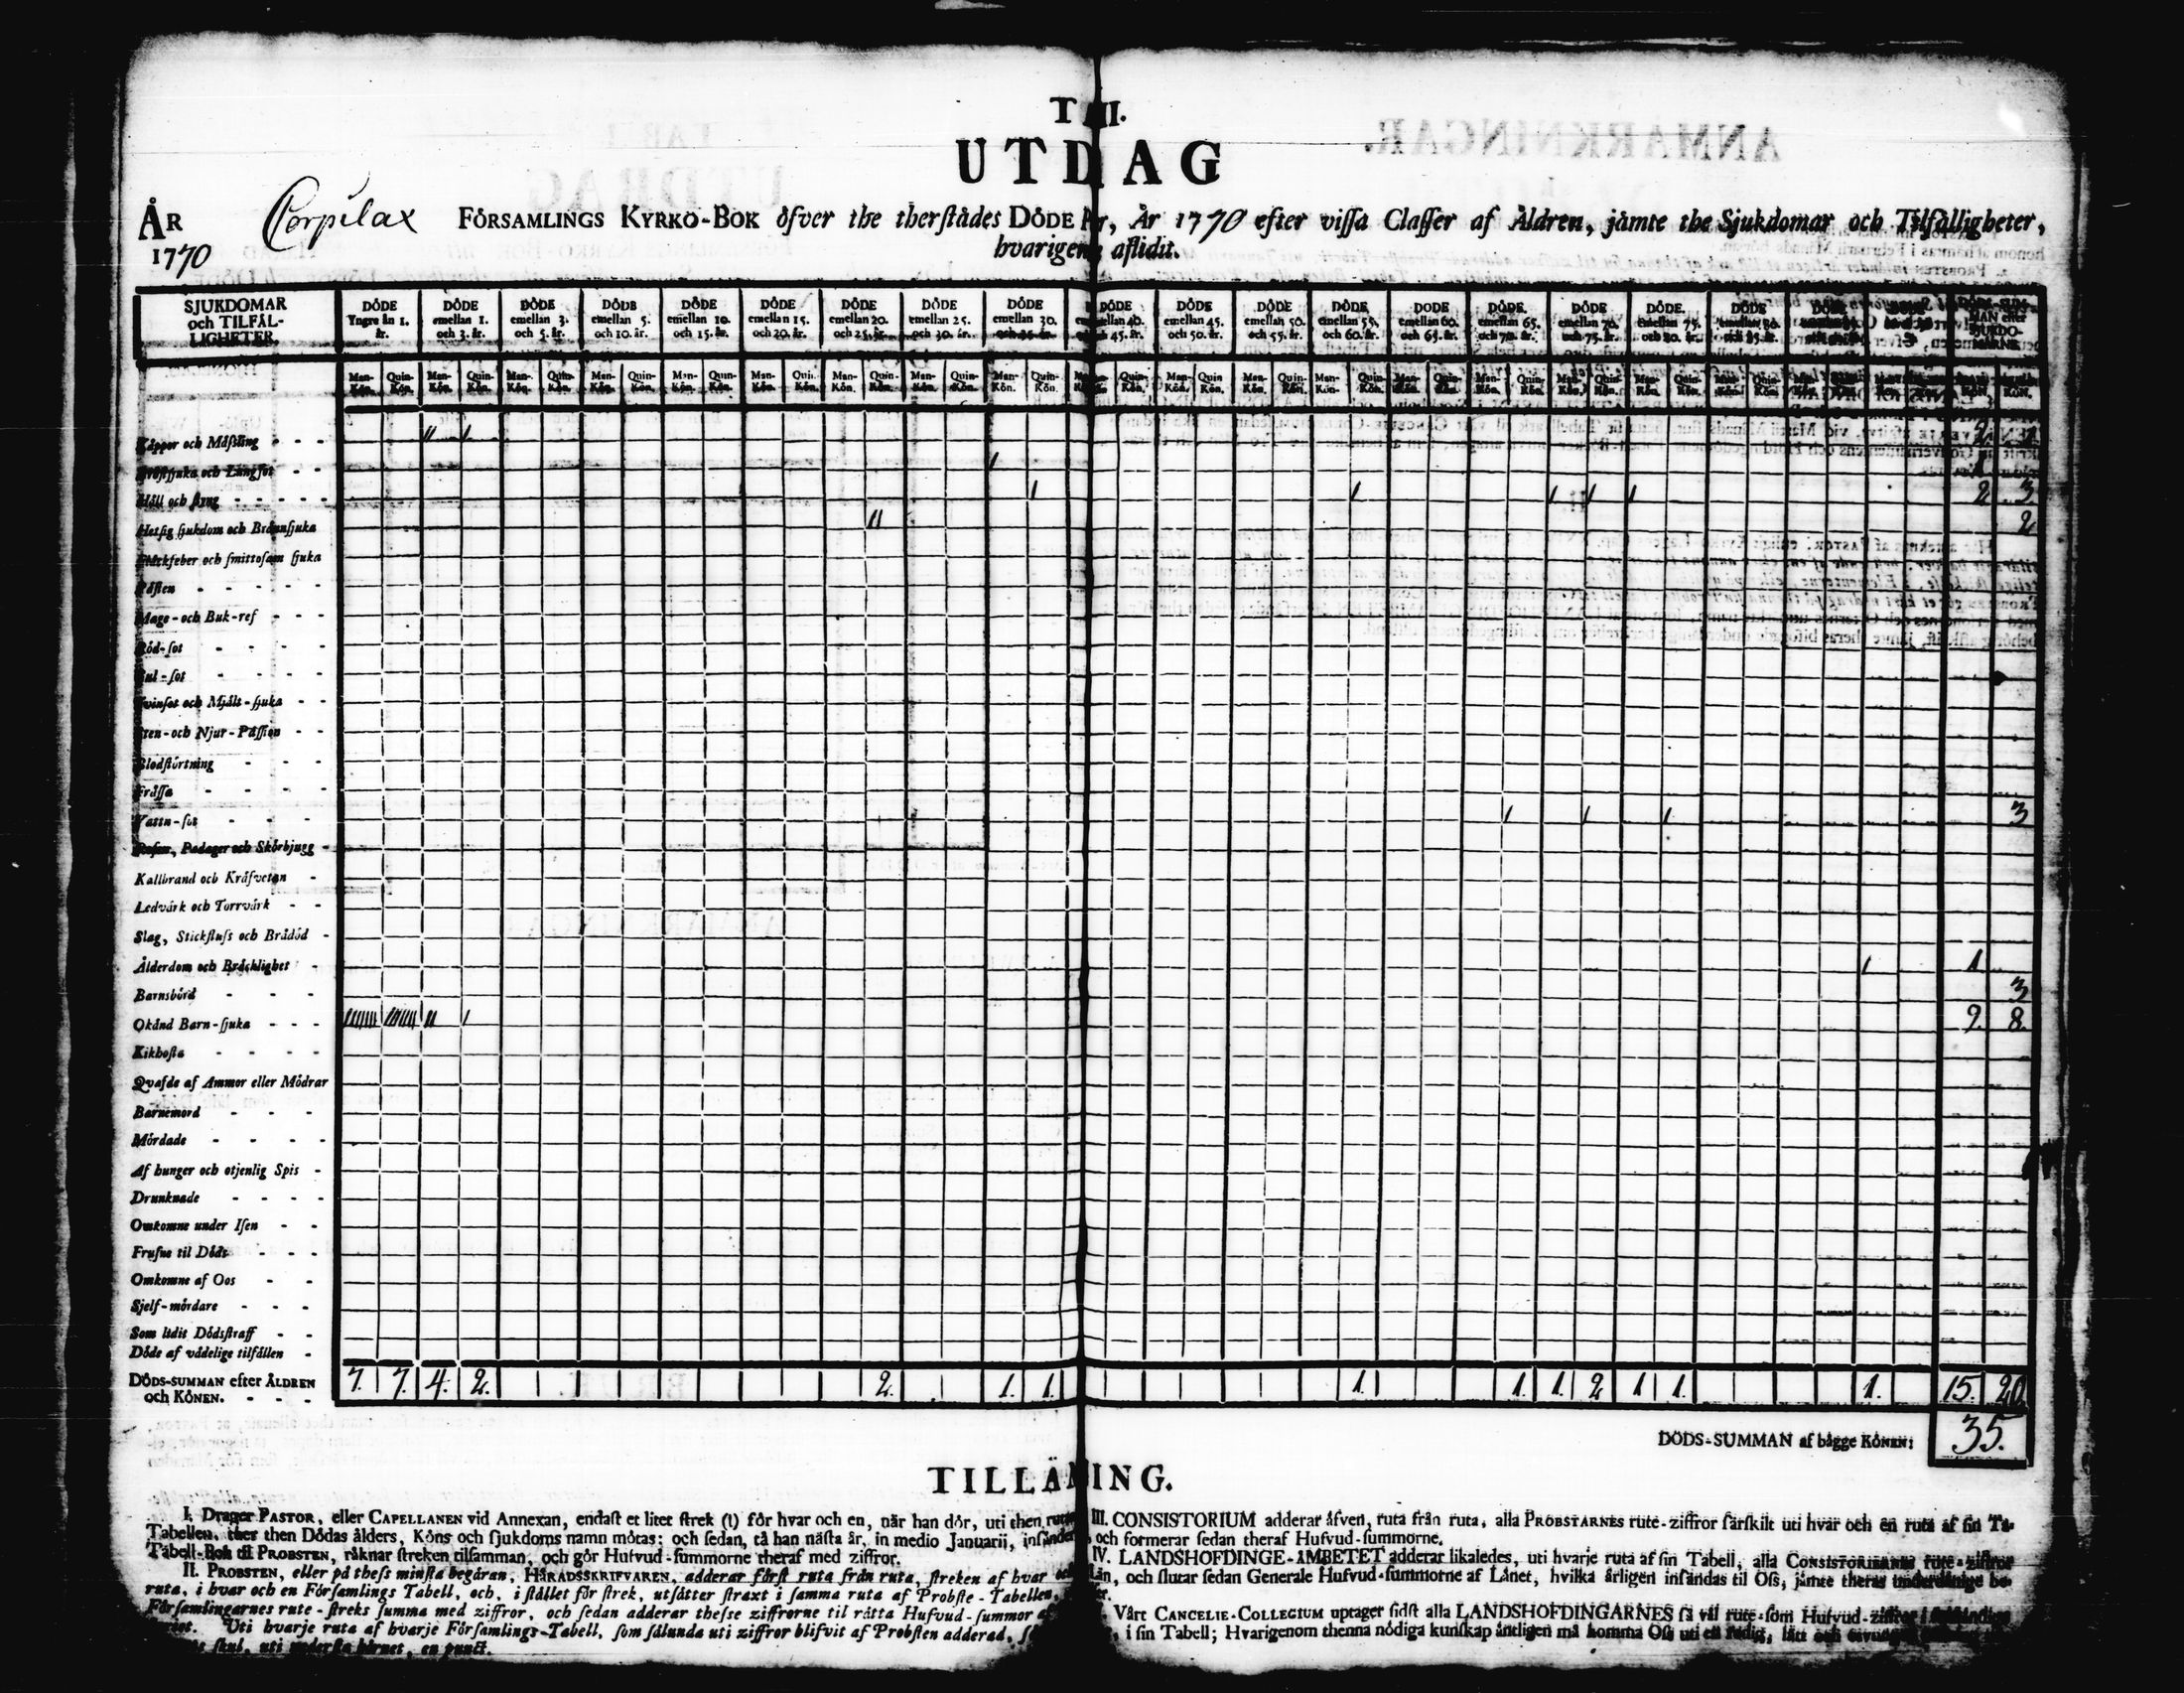 T II.
UTD AG
ÅR Corpilax FÖRSAMLINGS KYRKO-BOK öfver the therstådes DÖDE År 1770 efter vissa Classer af Åldren, jämte the Sjukdomar och Tilfälligheter,
1770 hvarigen aflidit.
SJUKDOMAR och TILFÄL-LIGHETER. DÖDE Yngre än 1. år. DÖDE emellan 1. och 3. år. DÖDE emellan 3. och 5. år. DÖDE emellan 5. och 10. år. DÖDE emellan 10. och 15. år. DÖDE emellan 15. och 20. år. DÖDE emellan 20. och 25. år. DÖDE emellan 25. och 30. år. DÖDE emellan 30. och 35. år. DÖDE emellan 40. och 45. år. DÖDE emellan 45. och 50. år. DÖDE emellan 50. och 55. år. DÖDE emellan 55. och 60. år. DÖDE emellan 60. och 65. år. DÖDE emellan 65. och 70. år. DÖDE emellan 70. och 75. år. DÖDE. emellan 75. och 80. år. DÖDE emellan 80. och 85. år.
Man-Kön. Quin-Kön. Man-Kön. Quin-Kön. Man-Kön. Quin-Kön. Man-Kön. Quin-Kön. Man-Kön. Quin-Kön. Man-Kön. Quin-Kön. Man-Kön. Quin-Kön. Man-Kön. Quin-Kön. Man-Kön. Quin-Kön.
Kåppor och Mäßling - - - II I 2 1
Bröstsjuka och Lungsot - - I
Håll och styng - - - - I I I I I 2 3
Hetsig sjukdom och Brännsjuka II 2
Fläckfeber och smittosam sjuka
Påsten - - - - -
Mage-och Buk-ref - - -
Röd-sot - - - -
Gul-sot - - - -
Tvinsot och Mjält-sjuka - -
Sten-och Njur-Passion - -
Blodstörtning - - -
Fråssa - - - -
Vattu-sot - - - I I I 3
Rosen, Podager och Skörbjugg -
Kallbrand och Kräfvetan -
Ledvärk och Torrvärk - -
Slag, Stickfluss och Brådöd -
Ålderdom och Bräcklighet - I 1
Barnsbörd - - - 3
Okänd Barn-sjuka - - - IIIIIII IIIIIII II I 9. 8.
Kikhosta - - - -
Qvafde af Ammor eller Mödrar
Barnemord - - - -
Mördade - - - -
Af hunger och otjenlig Spis -
Drunknade - - - -
Omkomne under Isen - -
Frusne til Döds - - -
Omkomne af Oos - -
Sjelf-mördare - - -
Som lidit Dödsstraff - -
Döde af vådelige tilfällen -
DÖDS-SUMMAN efter ÅLDREN och KÖNEN. - - - 7. 7. 4. 2. 2. 1. 1. 1. 1. 1. 2 1 1. 1. 15. 20.
DÖDS-SUMMAN af bägge KÖNEN: 35.
TILLÄ NING.
I. Drager PASTOR, eller CAPELLANEN vid Annexan, endast et litet strek (I) för hvar och en, när han dör, uti then
Tabellen, ther then Dödas ålders, Köns och sjukdoms namn mötas; och sedan, tå han nästa år, in medio Januarii,
Tabell-Bok til PROBSTEN, räknar streken tilsamman, och gör Hufvud-summorne theraf med ziffror.
II. PROBSTEN, eller på thess minsta begäran, HÄRADSSKRIFVAREN, adderar först ruta från ruta, streken af hvar
ruta, i hvar och en Församlings Tabell, och, i stället för strek, utsätter straxt i samma ruta af Probste-Tabellen,
Församlingarnes rute-streks summa med ziffror, och sedan adderar thesse ziffrorne til rätta Hufvud-summor
Uti hvarje ruta af hvarje Församlings-Tabell, som sålunda uti ziffror blifvit af Probsten adderad,
skul, uti nedersta hörnet, en punct.
III. CONSISTORIUM adderar äfven, ruta från ruta, alla PROBSTARNES rute-ziffror särskilt uti hvar och en ruta af sin Ta-
och formerar sedan theraf Hufvud-summorne.
IV. LANDSHÖFDINGE-ÄMBETET adderar likaledes, uti hvarje ruta af sin Tabell, alla CONSISTORIERNES rute-ziffror
Län, och slutar sedan Generale Hufvud-summorne af Länet, hvilka årligen insändas til Oss, jämte theras underdånige be-
Vårt CANCELIE-COLLEGIUM uptager sidst alla LANDSHÖFDINGARNES så väl rute-som Hufvud-ziffror
i sin Tabell; Hvarigenom thenna nödiga kunskap äntligen må komma Oss uti en redig, lätt och